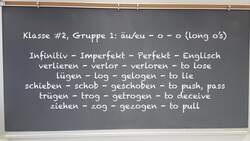 Klasse #2, Gruppe 1: äu/eu - o - o (long o's)
Infinitiv - Imperfekt - Perfekt - Englisch
verlieren - verlor - verloren - to lose
lügen - log - gelogen - to lie
schieben - schob - geschoben - to push, pass
trügen - trog - getrogen - to deceive
ziehen - zog - gezogen - to pull